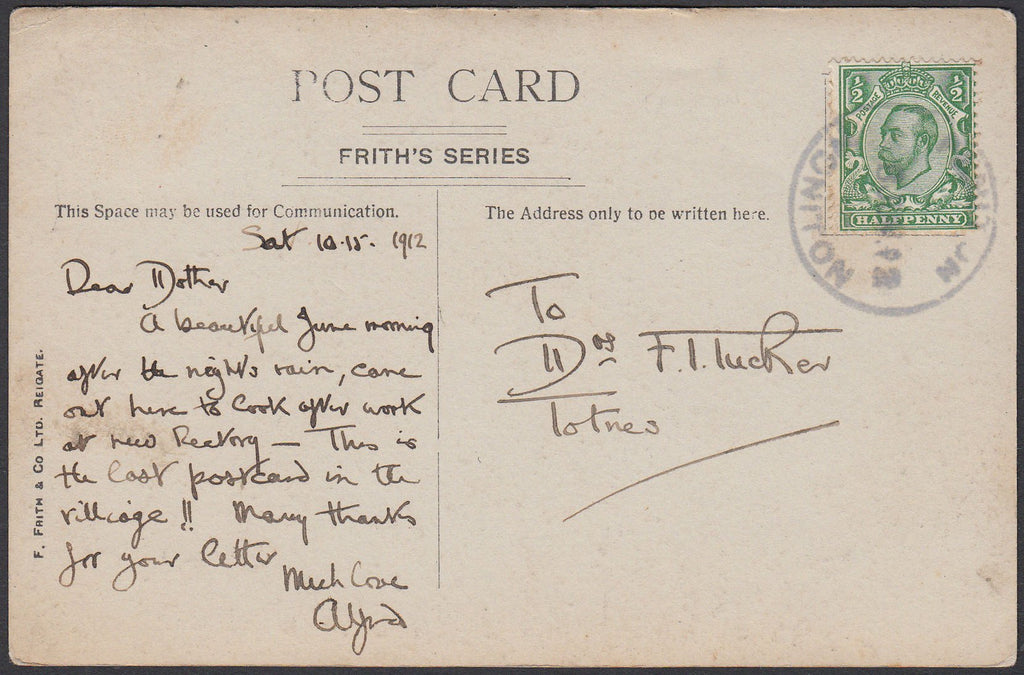 POST CARD
FRITH'S SERIES
This Space may be used for Communication.
The Address only to be written here.
½ ½
POSTAGE REVENUE
HALFPENNY
Sat 10.15. 1912
Dear Mother
A beautiful June morning
after the night's rain, came
out here to look after work
at new Rectory — This is
the last postcard in the
village !! Many thanks
for your letter
Much love
Alfred
To
Mrs F. T. Tucker
Totnes
F. FRITH & CO LTD. REIGATE.